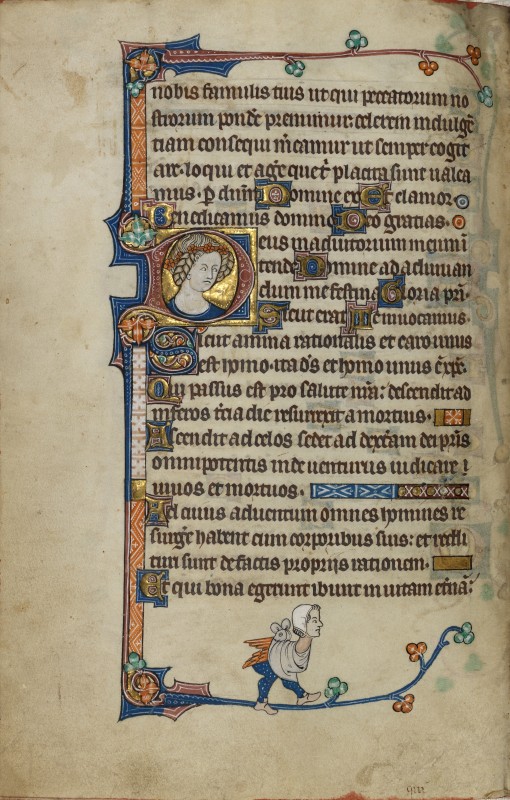 nobis famulis tuis ut qui peccatorum no
strorum pondere premimur celerem indulgē
tiam consequi mereamur ut semper cogit
are loqui et agere que tibi placita sunt valea
mus. P dnm Domine ex Et clamor
Benedicamus domino Deo gratias.
Deus in adiutorium meum in
tende Domine ad adiuuan
dum me festina Gloria pri.
Sicut erat Me inuocamus.
Sicut anima rationalis et caro unus
est homo. ita ds et homo unusē xpc.
Qui passus est pro salute nra: descendit ad
inferos tcia die resurrexit a mortuis.
Ascendit ad celos sedet ad dexteram dei pris
omnipotentis inde venturus iudicare
uiuos et mortuos.
Ad cuius aduentum omnes homines re
surgere habent cum corporibus suis: et reddi
turi sunt de factis propriis rationem.
Et qui bona egerunt ibunt in uitam etnā: